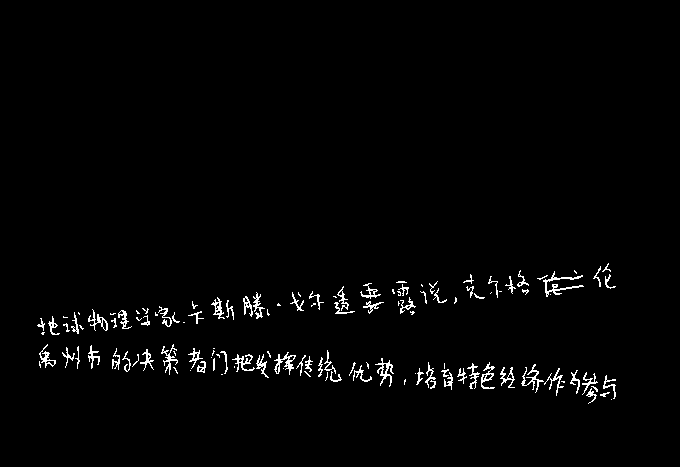 地球物理学家卡斯滕·戈尔透露说,克尔格伦
禹州市的决策者们把发挥传统优势,培育特色经济作为参与